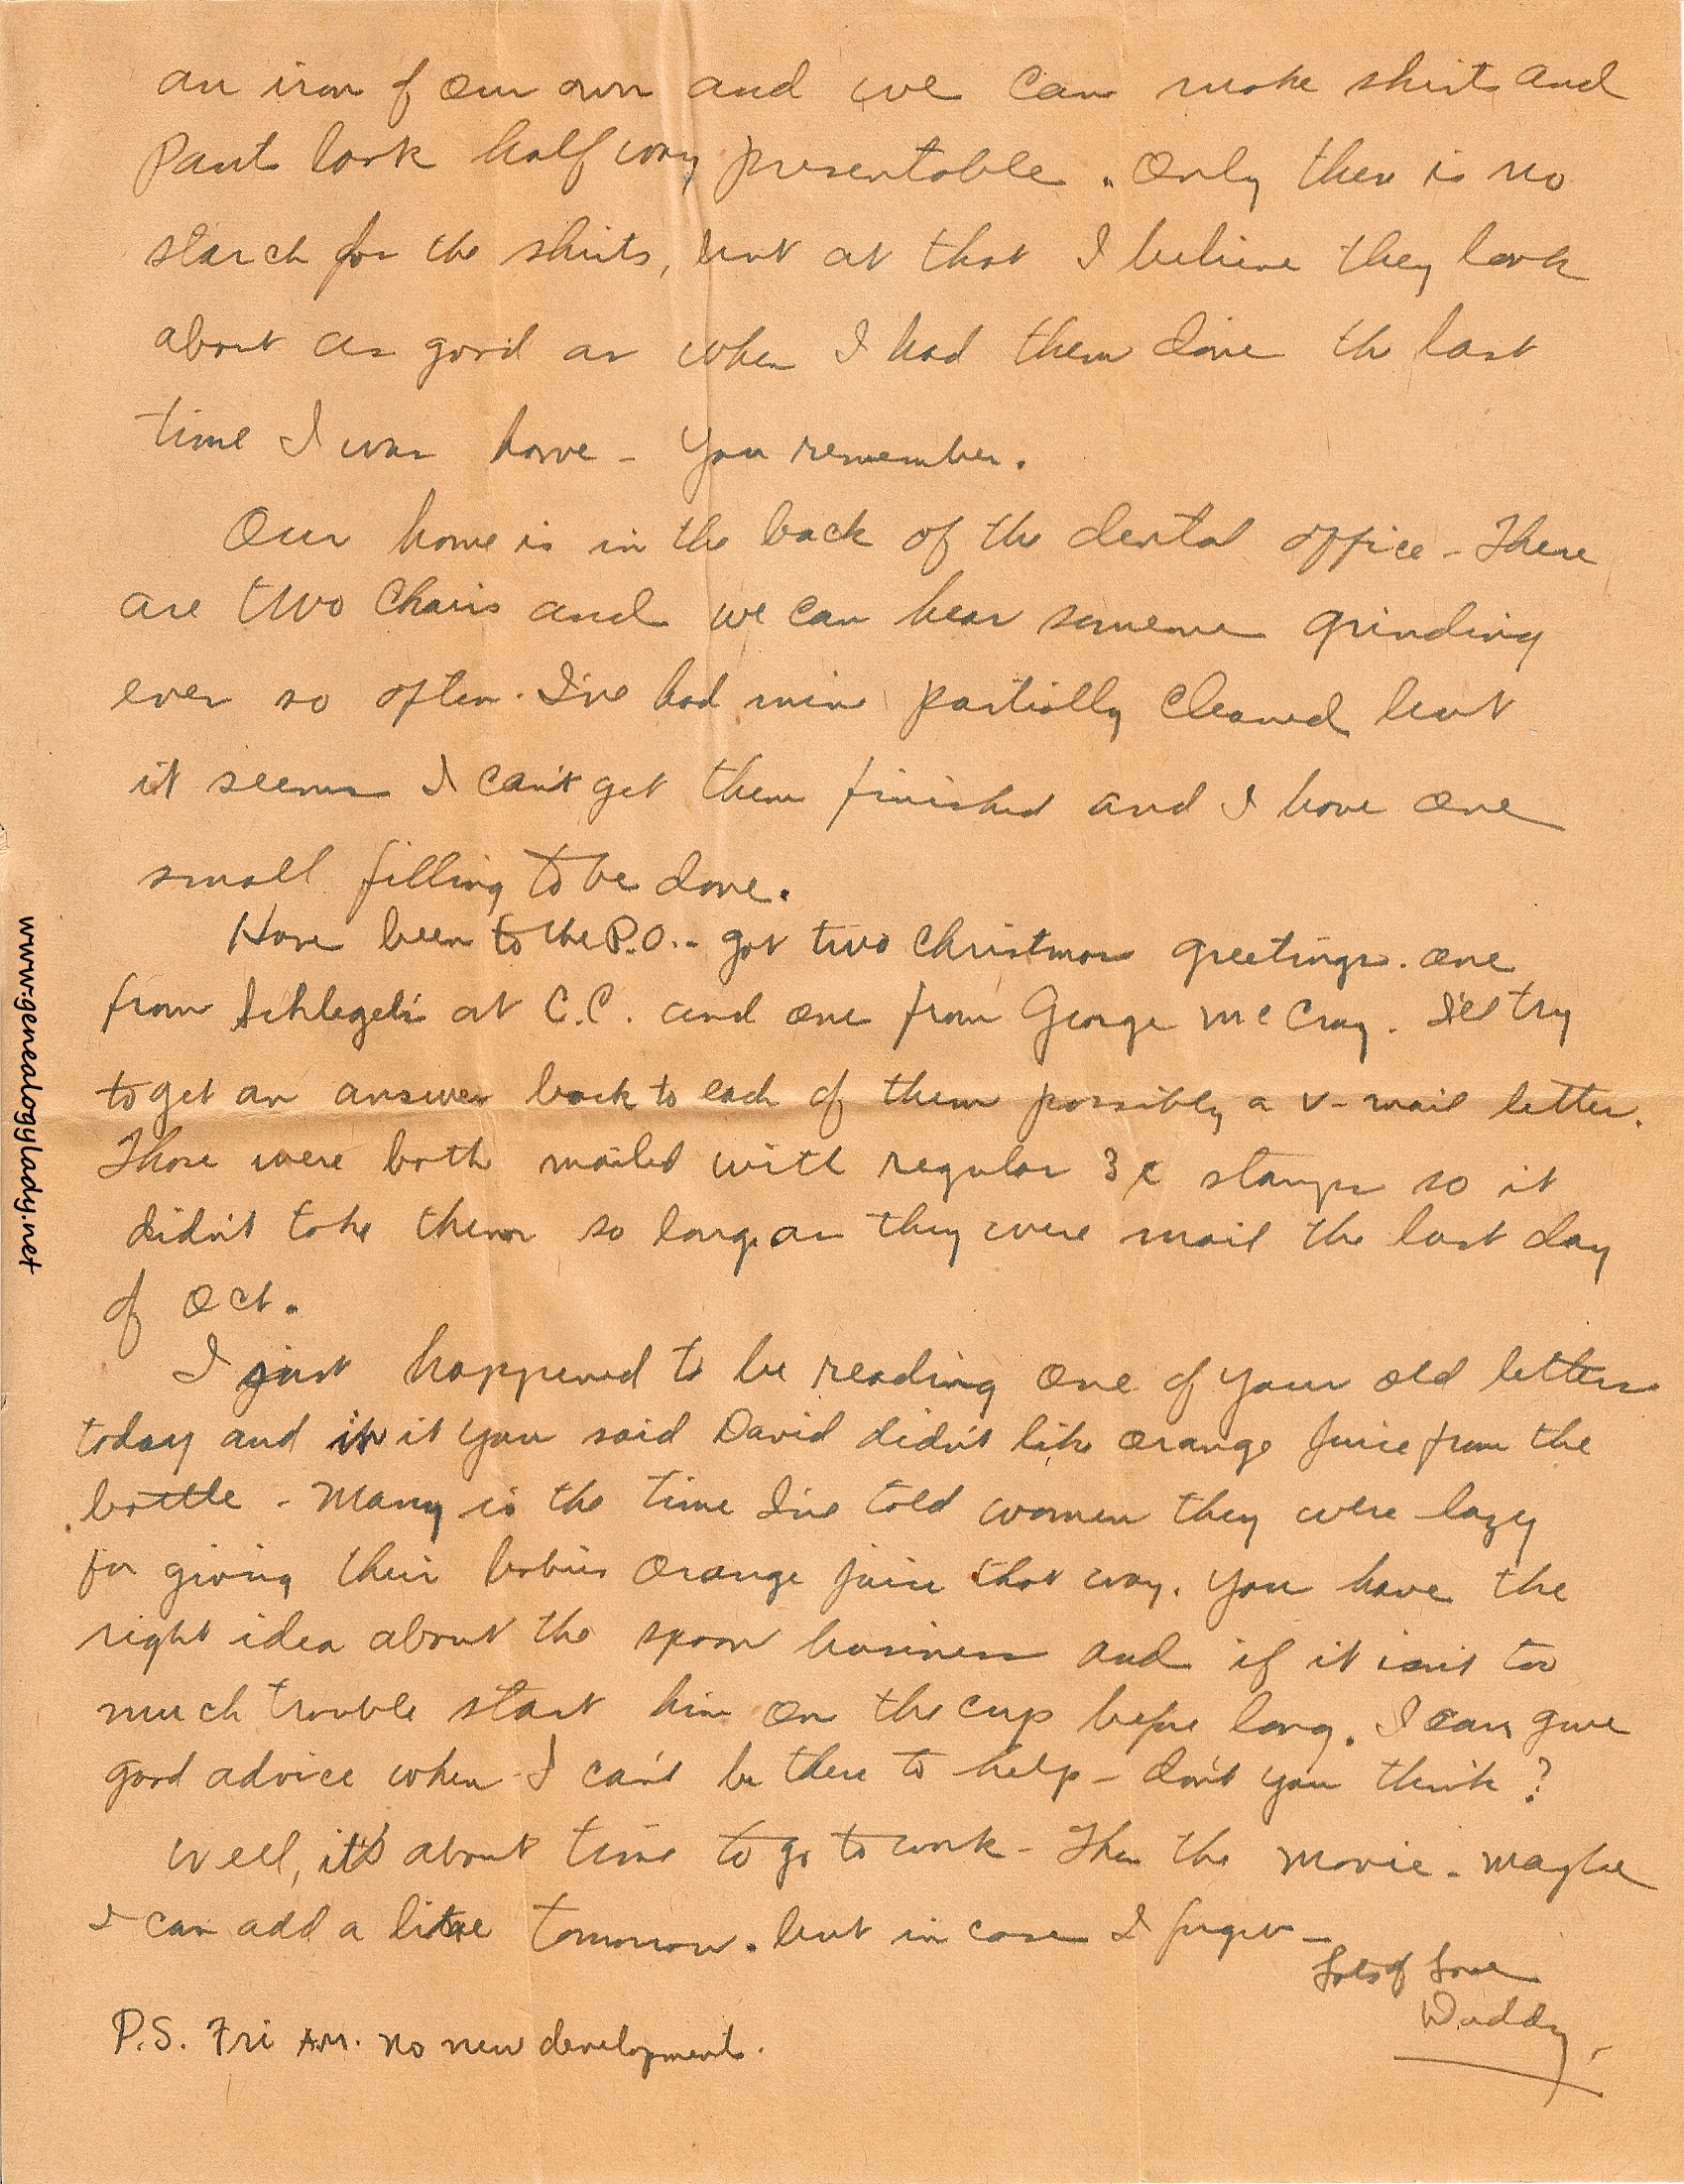 an iron of our own and we can make shirts and
pants look half way presentable. Only there is no
starch for the shirts, but at that I believe they look
about as good as when I had them done the last
time I was home - you remember.
Our home is in the back of the dental office - There
are two chairs and we can hear someone grinding
ever so often. I've had mine partially cleaned but
it seems I can't get them finished and I have one
small filling to be done.
Have been to the P.O. - got two Christmas greetings. one
from Schlegel's at C.C. and one from George McCray. I'll try
to get an answer back to each of them possibly a v-mail letter.
Those were both mailed with regular 3¢ stamps so it
didn't take them so long as they were mail the last day
of Oct.
I just happened to be reading one of your old letters
today and in it you said David didn't like orange juice from the
bottle - Many is the time I've told women they were lazy
for giving their babies orange juice that way. You have the
right idea about the spoon business and if it isn't too
much trouble start him on the cup before long. I can give
good advice when I can't be there to help - don't you think?
Well, it's about time to go to work - Then the movie - maybe
I can add a little tomorrow. but in case I forget -
Lots of Love
Daddy
P.S. Fri A.M. No new developments.
www.genealogylady.net